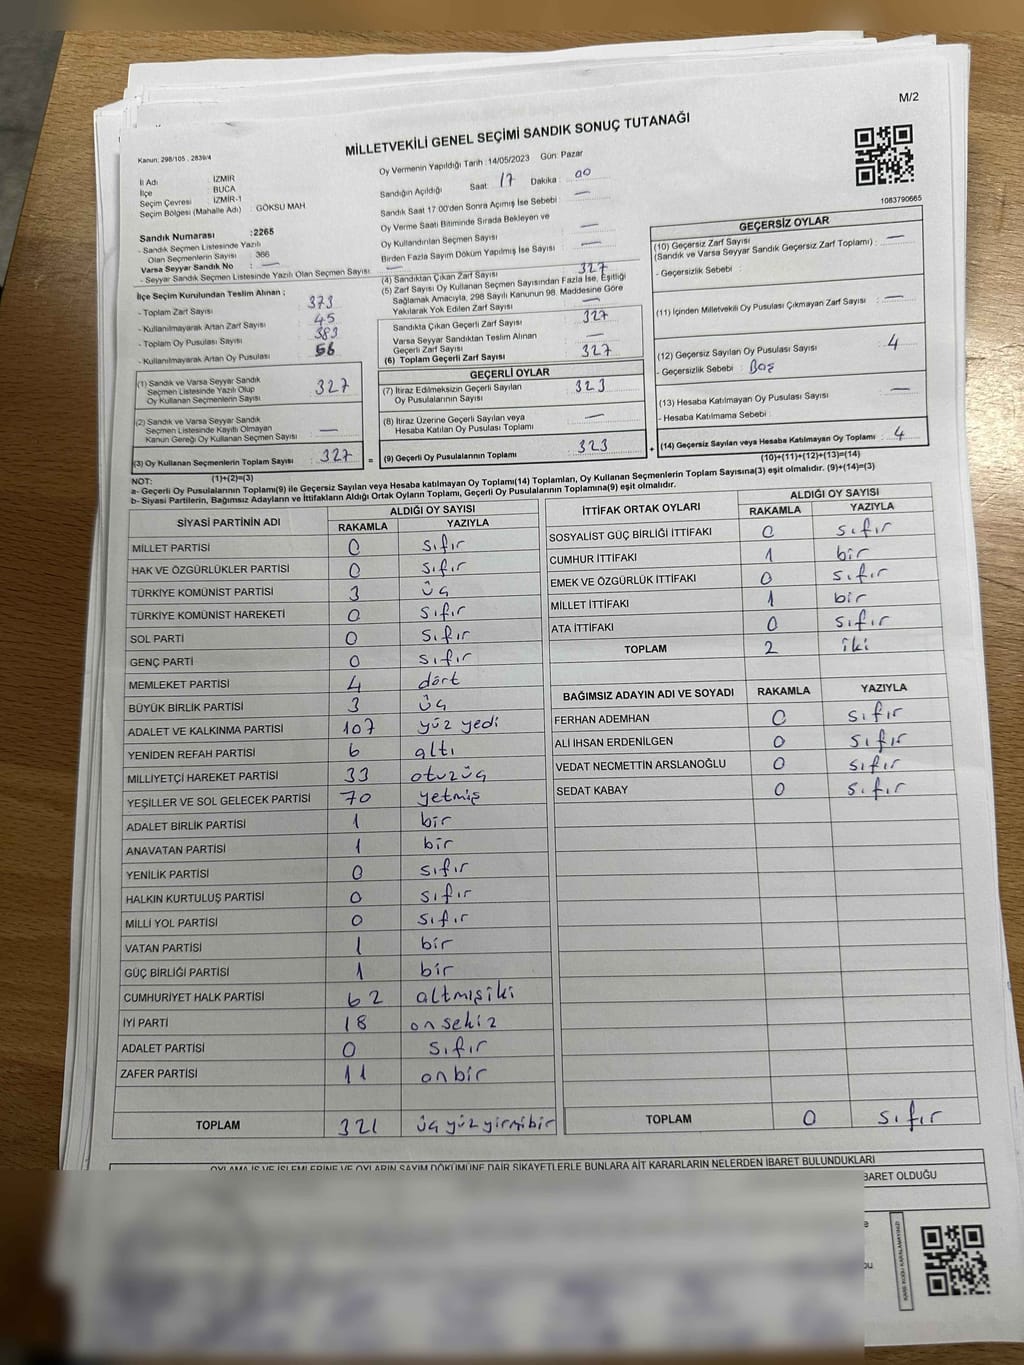 M/2
MİLLETVEKİLİ GENEL SEÇİMİ SANDIK SONUÇ TUTANAĞI
Kanun: 298/105 , 2839/4
İl Adı : İZMİR
İlçe : BUCA
Seçim Çevresi : İZMİR-1
Seçim Bölgesi (Mahalle Adı) : GÖKSU MAH
Sandık Numarası : 2265
- Sandık Seçmen Listesinde Yazılı
Olan Seçmenlerin Sayısı : 366
Varsa Seyyar Sandık No : —
- Seyyar Sandık Seçmen Listesinde Yazılı Olan Seçmen Sayısı : —
İlçe Seçim Kurulundan Teslim Alınan ;
- Toplam Zarf Sayısı : 373
- Kullanılmayarak Artan Zarf Sayısı : 45
- Toplam Oy Pusulası Sayısı : 383
- Kullanılmayarak Artan Oy Pusulası : 56
(1) Sandık ve Varsa Seyyar Sandık
Seçmen Listesinde Yazılı Olup
Oy Kullanan Seçmenlerin Sayısı : 327
(2) Sandık ve Varsa Seyyar Sandık
Seçmen Listesinde Kayıtlı Olmayan
Kanun Gereği Oy Kullanan Seçmen Sayısı : —
(3) Oy Kullanan Seçmenlerin Toplam Sayısı : 327
(1)+(2)=(3)
Oy Vermenin Yapıldığı Tarih : 14/05/2023 Gün: Pazar
Sandığın Açıldığı Saat : 17 Dakika : 00
Sandık Saat 17:00'den Sonra Açılmış İse Sebebi : —
Oy Verme Saati Bitiminde Sırada Bekleyen ve
Oy Kullandırılan Seçmen Sayısı : —
Birden Fazla Sayım Döküm Yapılmış İse Sayısı : —
(4) Sandıktan Çıkan Zarf Sayısı : 327
(5) Zarf Sayısı Oy Kullanan Seçmen Sayısından Fazla İse, Eşitliği
Sağlamak Amacıyla, 298 Sayılı Kanunun 98. Maddesine Göre
Yakılarak Yok Edilen Zarf Sayısı : —
Sandıkta Çıkan Geçerli Zarf Sayısı : 327
Varsa Seyyar Sandıktan Teslim Alınan
Geçerli Zarf Sayısı
(6) Toplam Geçerli Zarf Sayısı : 327
GEÇERLİ OYLAR
(7) İtiraz Edilmeksizin Geçerli Sayılan
Oy Pusulalarının Sayısı : 323
(8) İtiraz Üzerine Geçerli Sayılan veya
Hesaba Katılan Oy Pusulası Toplamı : —
(9) Geçerli Oy Pusulalarının Toplamı : 323
1083790665
GEÇERSİZ OYLAR
(10) Geçersiz Zarf Sayısı
(Sandık ve Varsa Seyyar Sandık Geçersiz Zarf Toplamı) : —
- Geçersizlik Sebebi :
(11) İçinden Milletvekili Oy Pusulası Çıkmayan Zarf Sayısı : —
(12) Geçersiz Sayılan Oy Pusulası Sayısı : 4
- Geçersizlik Sebebi : Boş
(13) Hesaba Katılmayan Oy Pusulası Sayısı : —
- Hesaba Katılmama Sebebi :
(14) Geçersiz Sayılan veya Hesaba Katılmayan Oy Toplamı : 4
(10)+(11)+(12)+(13)=(14)
NOT:
a- Geçerli Oy Pusulalarının Toplamı(9) ile Geçersiz Sayılan veya Hesaba katılmayan Oy Toplamı(14) Toplamları, Oy Kullanan Seçmenlerin Toplam Sayısına(3) eşit olmalıdır. (9)+(14)=(3)
b- Siyasi Partilerin, Bağımsız Adayların ve İttifakların Aldığı Ortak Oyların Toplamı, Geçerli Oy Pusulalarının Toplamına(9) eşit olmalıdır.
SİYASİ PARTİNİN ADI ALDIĞI OY SAYISI
RAKAMLA YAZIYLA
MİLLET PARTİSİ 0 sıfır
HAK VE ÖZGÜRLÜKLER PARTİSİ 0 sıfır
TÜRKİYE KOMÜNİST PARTİSİ 3 üç
TÜRKİYE KOMÜNİST HAREKETİ 0 sıfır
SOL PARTİ 0 sıfır
GENÇ PARTİ 0 sıfır
MEMLEKET PARTİSİ 4 dört
BÜYÜK BİRLİK PARTİSİ 3 üç
ADALET VE KALKINMA PARTİSİ 107 yüz yedi
YENİDEN REFAH PARTİSİ 6 altı
MİLLİYETÇİ HAREKET PARTİSİ 33 otuzüç
YEŞİLLER VE SOL GELECEK PARTİSİ 70 yetmiş
ADALET BİRLİK PARTİSİ 1 bir
ANAVATAN PARTİSİ 1 bir
YENİLİK PARTİSİ 0 sıfır
HALKIN KURTULUŞ PARTİSİ 0 sıfır
MİLLİ YOL PARTİSİ 0 sıfır
VATAN PARTİSİ 1 bir
GÜÇ BİRLİĞİ PARTİSİ 1 bir
CUMHURİYET HALK PARTİSİ 62 altmışiki
İYİ PARTİ 18 onsekiz
ADALET PARTİSİ 0 sıfır
ZAFER PARTİSİ 11 onbir
TOPLAM 321 üçyüzyirmibir
İTTİFAK ORTAK OYLARI ALDIĞI OY SAYISI
RAKAMLA YAZIYLA
SOSYALİST GÜÇ BİRLİĞİ İTTİFAKI 0 sıfır
CUMHUR İTTİFAKI 1 bir
EMEK VE ÖZGÜRLÜK İTTİFAKI 0 sıfır
MİLLET İTTİFAKI 1 bir
ATA İTTİFAKI 0 sıfır
TOPLAM 2 iki
BAĞIMSIZ ADAYIN ADI VE SOYADI RAKAMLA YAZIYLA
FERHAN ADEMHAN 0 sıfır
ALİ İHSAN ERDENİLGEN 0 sıfır
VEDAT NECMETTİN ARSLANOĞLU 0 sıfır
SEDAT KABAY 0 sıfır
TOPLAM 0 sıfır
OYLAMA İŞ VE İŞLEMLERİNE VE OYLARIN SAYIM DÖKÜMÜNE DAİR ŞİKAYETLERLE BUNLARA AİT KARARLARIN NELERDEN İBARET BULUNDUKLARI
BARET OLDUĞU
KARE KODU KARALAMAYINIZ!